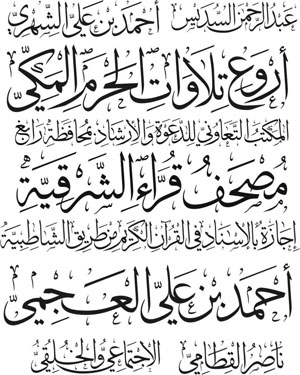 عبد الرحمن السديس أحمد بن علي الشهري
أروع تلاوات الحرم المكي
المكتب التعاوني للدعوة والإرشاد بمحافظة رابغ
مصحف قراء الشرقية
إجازة بالإسناد في القرآن الكريم من طريق الشاطبية
أحمد بن علي العجمي
ناصر القطامي الاجتماعي والخلقي